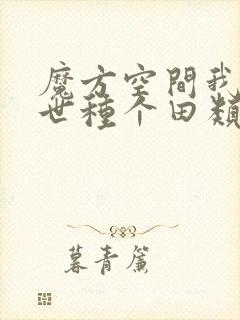 魔方空間我
世種个田類
暮青簾